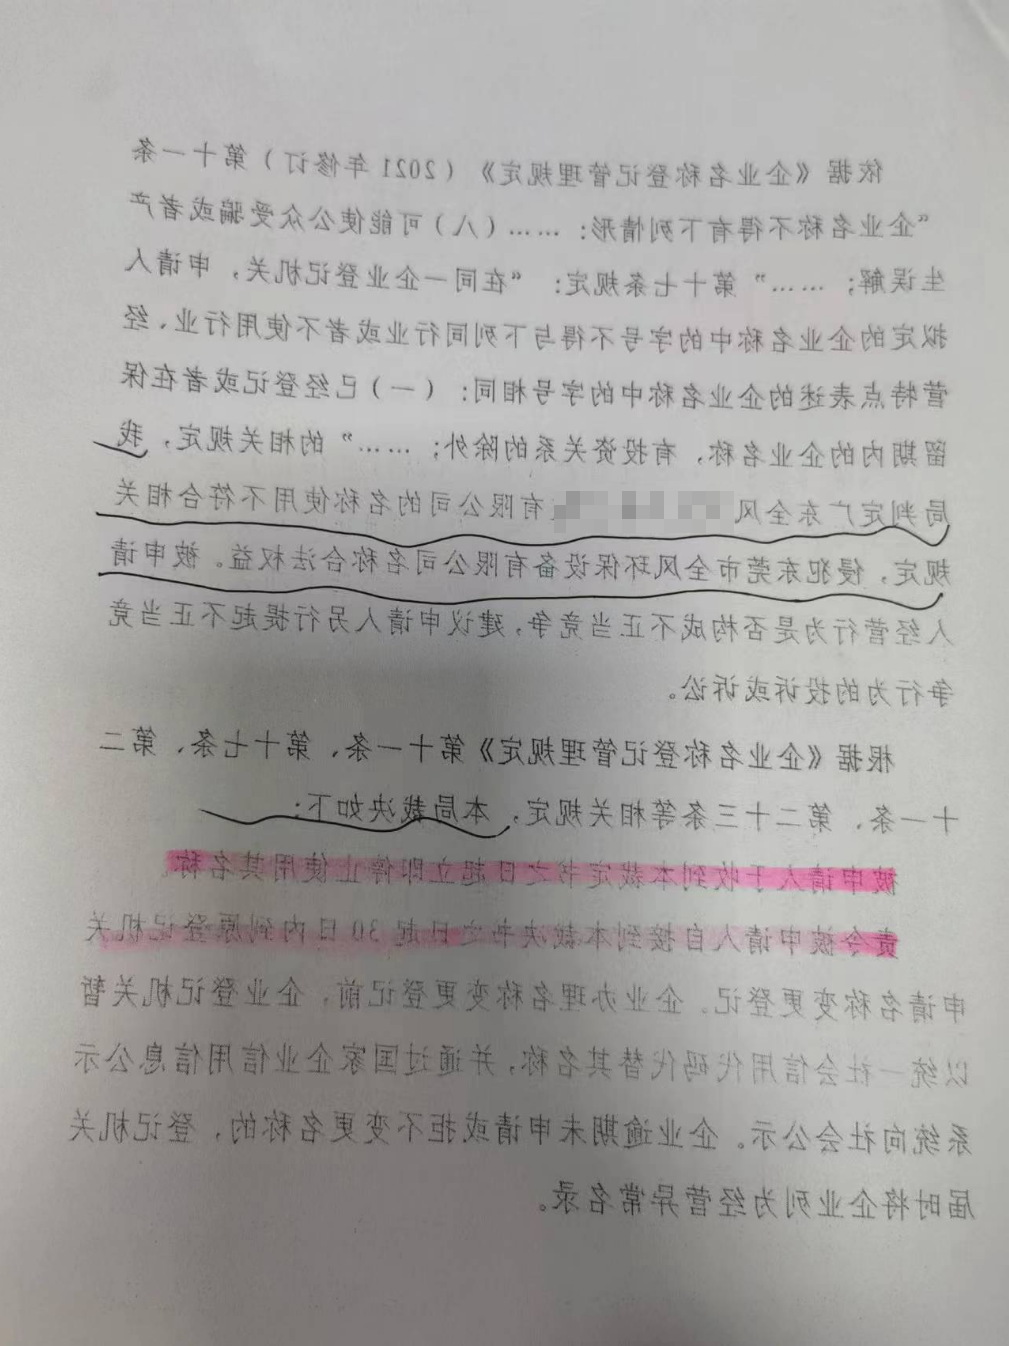 依据《企业名称登记管理规定》（2021 年修订）第十一条
“企业名称不得有下列情形：……（八）可能使公众受骗或者产
生误解；……”第十七条规定：“在同一企业登记机关，申请人
拟定的企业名称中的字号不得与下列同行业或者不使用行业、经
营特点表述的企业名称中的字号相同：（一）已经登记或者在保
留期内的企业名称，有投资关系的除外；……”的相关规定，我
局判定广东全风 有限公司的名称使用不符合相关
规定，侵犯东莞市全风环保设备有限公司名称合法权益。被申请
人经营行为是否构成不正当竞争，建议申请人另行提起不正当竞
争行为的投诉或诉讼。
根据《企业名称登记管理规定》第十一条、第十七条、第二
十一条、第二十三条等相关规定，本局裁决如下：
被申请人于收到本裁定书之日起立即停止使用其名称。
责令被申请人自接到本裁决书之日起 30 日内到原登记机关
申请名称变更登记。企业办理名称变更登记前，企业登记机关暂
以统一社会信用代码代替其名称，并通过国家企业信用信息公示
系统向社会公示。企业逾期未申请或拒不变更名称的，登记机关
届时将企业列为经营异常名录。